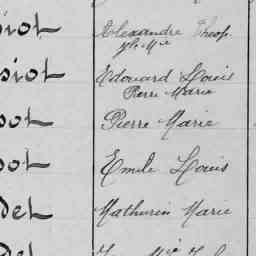 siot Alexandre Théop.
siot Edouard Louis
Pierre Marie
sot Pierre Marie
sot Emile Louis
det Mathurin Marie
det